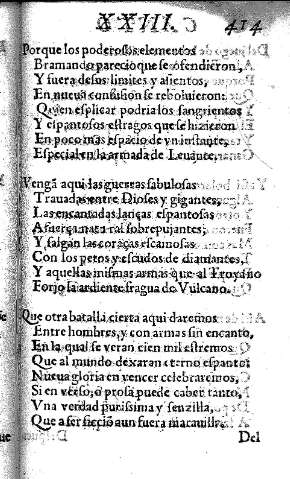 C. XXIII. 414
Porque los poderosos elementos
Bramando pareció que se ofendieron,
Y fuera de sus limites y asientos,
En nueua confusion se reboluieron:
Quien esplicar podria los sangrientos
Y espantosos estragos que se hizieron
En poco mas espacio de vn instante,
Especial en la armada de Leuante.
Vengā aqui las guerras fabulosas
Trauadas entre Dioses y gigantes,
Las encantadas lanças espantosas
A fuerça natural sobrepujantes;
Y salgan las coraças escamosas
Con los petos y escudos de diamantes,
Y aquellas mismas armas que al Troyano
Forjo la ardiente fragua de Vulcano.
Que otra batalla cierta aqui daremos
Entre hombres, y con armas sin encanto,
En la qual se veran cien mil estremos
Que al mundo dexaran eterno espanto:
Nueua gloria en vencer celebraremos,
Si en verso, o prosa puede caber tanto,
Vna verdad purissima y senzilla,
Que a ser ficció aun fuera marauilla.
Del